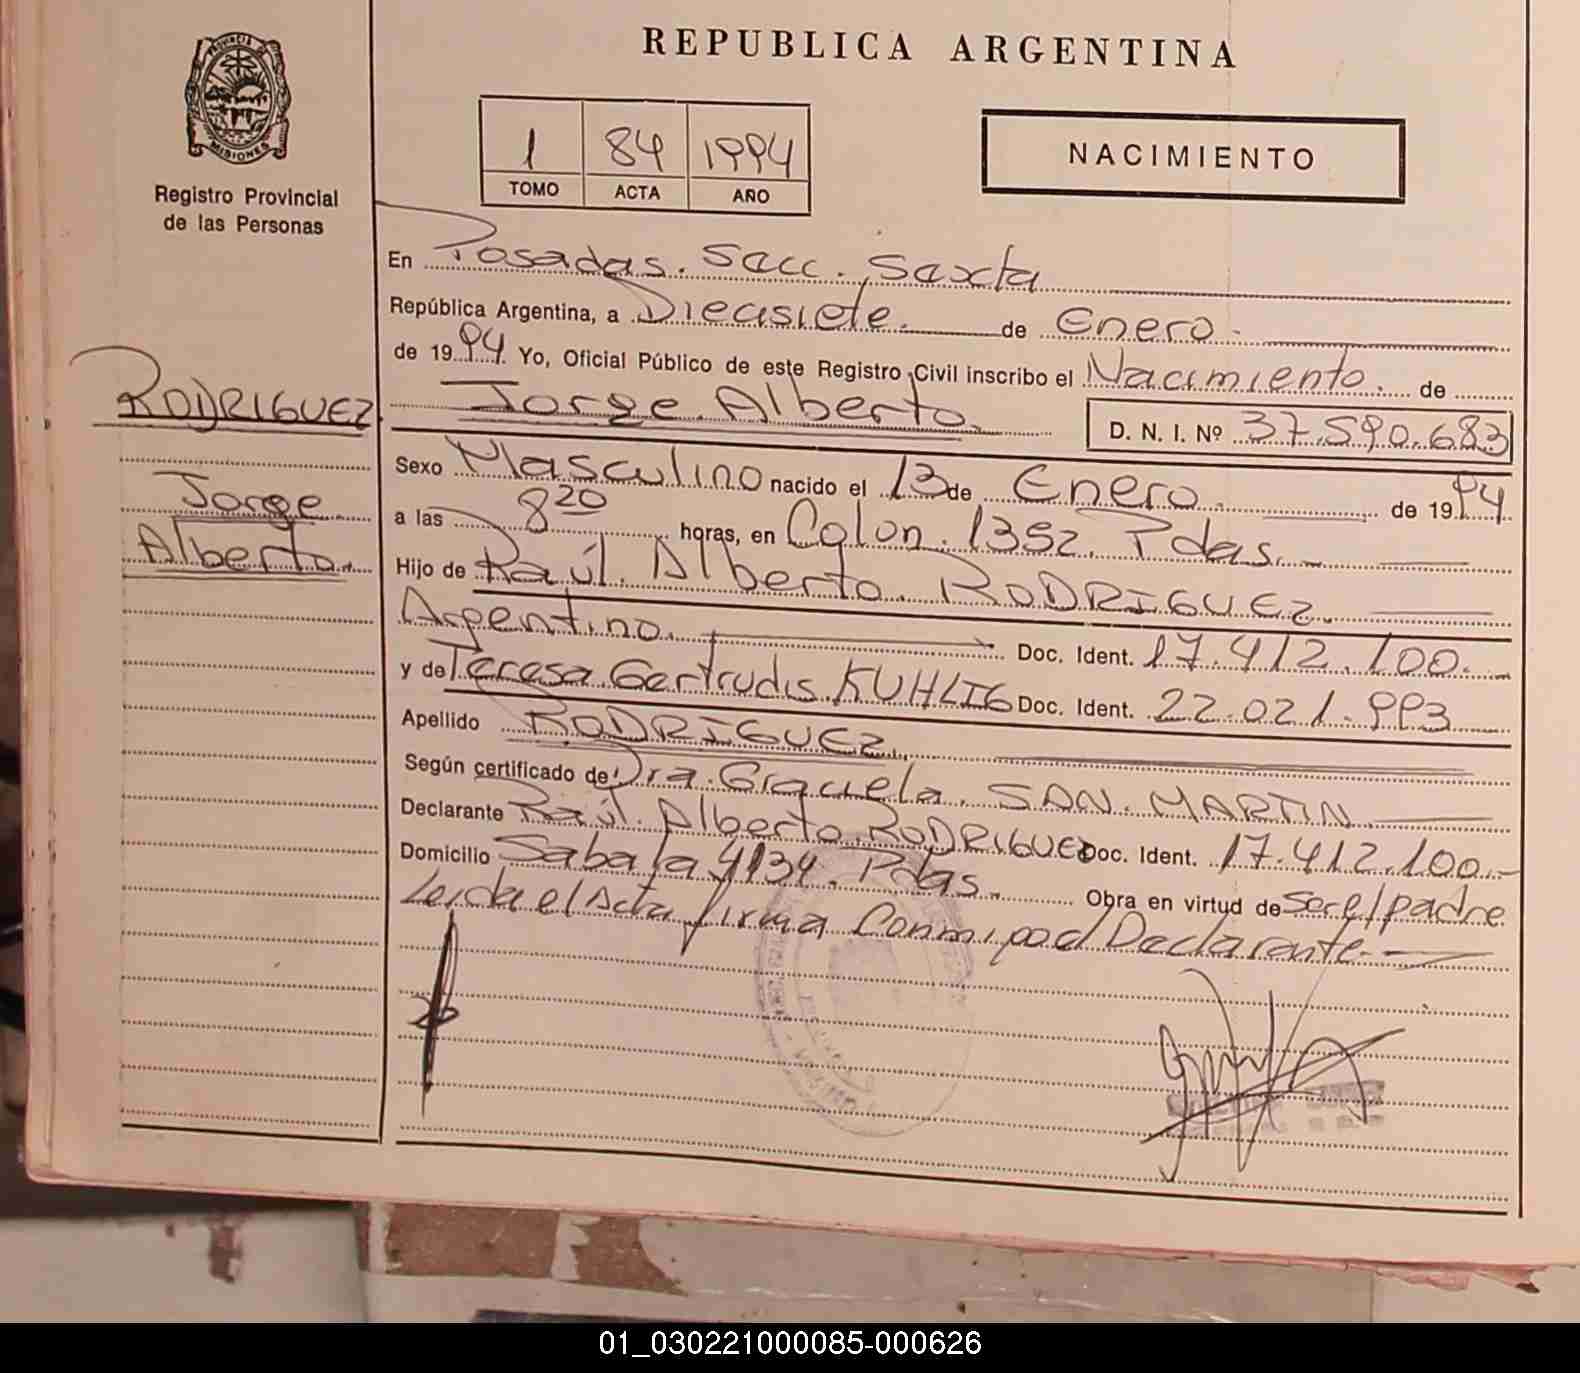 REPUBLICA ARGENTINA
PROVINCIA DE
MISIONES
Registro Provincial
de las Personas
1 84 1994
TOMO ACTA AÑO
NACIMIENTO
En Posadas. Secc. Sexta
República Argentina, a Diecisiete. de Enero.
de 1994. Yo, Oficial Público de este Registro Civil inscribo el Nacimiento. de
Jorge Alberto. D. N. I. Nº 37.590.683
RODRIGUEZ
Jorge
Alberto.
Sexo Masculino nacido el 13 de Enero. de 1994
a las 8 20 horas, en Colon. 1352. Pdas.
Hijo de Raúl. Alberto. RODRIGUEZ.
Argentino. Doc. Ident. 17.412.100.
y de Teresa Gertrudis KUHLIG Doc. Ident. 22.021.993
Apellido RODRIGUEZ.
Según certificado de Dra. Graciela. SAN. MARTIN
Declarante Raúl. Alberto. RODRIGUEZ Doc. Ident. 17.412.100.-
Domicilio Sabala 4134. Pdas. Obra en virtud de ser el padre
Leida el Acta firma Conmigo el Declarante.-
01_030221000085-000626